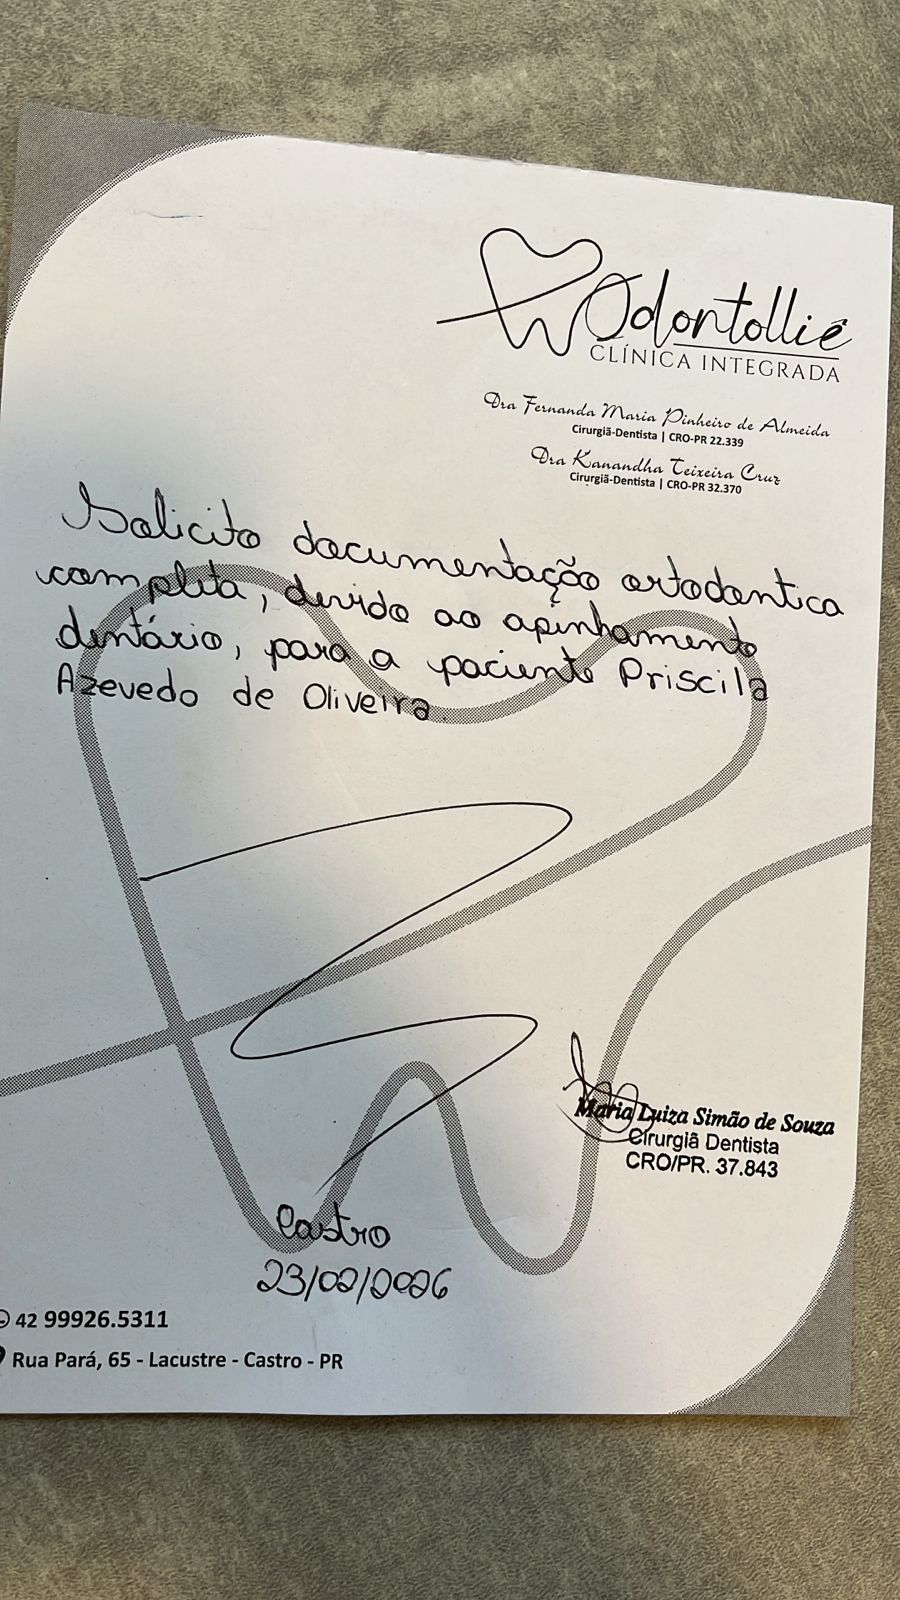 Odontolliê
CLÍNICA INTEGRADA
Dra Fernanda Maria Pinheiro de Almeida
Cirurgiã-Dentista | CRO-PR 22.339
Dra Kanandha Teixeira Cruz
Cirurgiã-Dentista | CRO-PR 32.370
Solicito documentação ortodontica
completa, devido ao apinhamento
dentário, para a paciente Priscila
Azevedo de Oliveira.
Maria Luiza Simão de Souza
Cirurgiã Dentista
CRO/PR. 37.843
Castro
23/02/2026
42 99926.5311
Rua Pará, 65 - Lacustre - Castro - PR